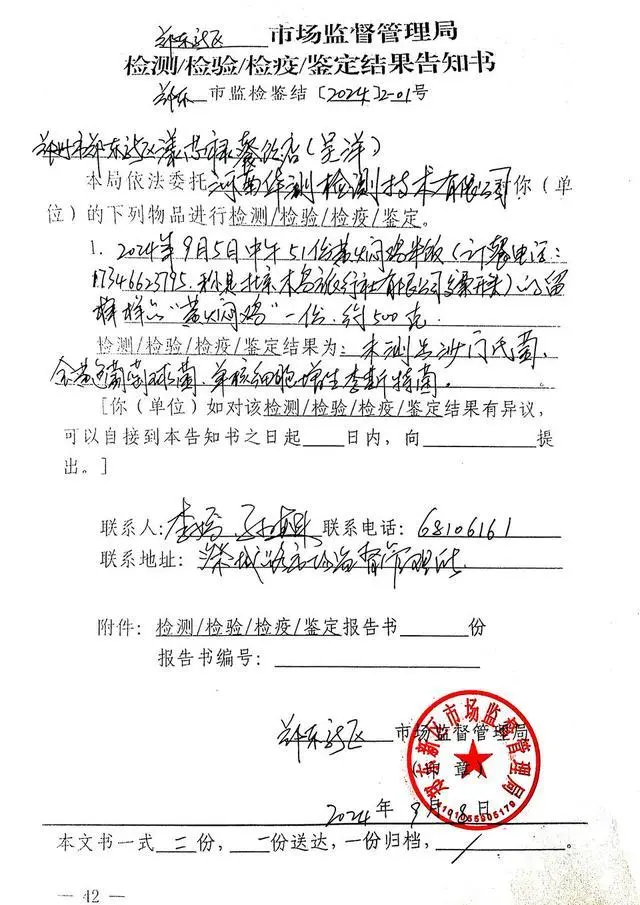 郑东新区 市场监督管理局
检测/检验/检疫/鉴定结果告知书
郑东 市监检鉴结〔2024〕2-01号
郑州市郑东新区漾苏禄餐饮店(吴洋)
本局依法委托河南华测检测技术有限公司你(单
位)的下列物品进行检测/检验/检疫/鉴定。
1. 2024年9月5日中午51份黄焖鸡米饭(订餐电话:
17346623795.称是北京木鸟旅行社有限公司)的留
样样品“黄焖鸡”一份.约500克
检测/检验/检疫/鉴定结果为: 未测出沙门氏菌,
金黄色葡萄球菌.单核细胞增生李斯特菌。
[你(单位)如对该检测/检验/检疫/鉴定结果有异议,
可以自接到本告知书之日起____日内,向________提
出。]
联系人:李 联系电话:68106161
联系地址: 路市场监督管理所.
附件:检测/检验/检疫/鉴定报告书____份
报告书编号:____________
郑东新区 市场监督管理局
(印 章)
郑东新区市场监督管理局
2024年9月8日
本文书一式二份,一份送达,一份归档, / 。
— 42 —